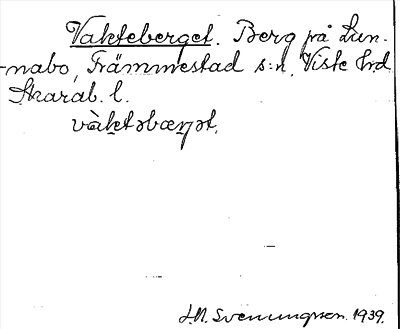 Vakteberget. Berg på Lun-
-nabo, Främmestad s:n, Viste hrd
Skarab. l.
vàktəbærjət.
J.N. Svenungsson. 1939.